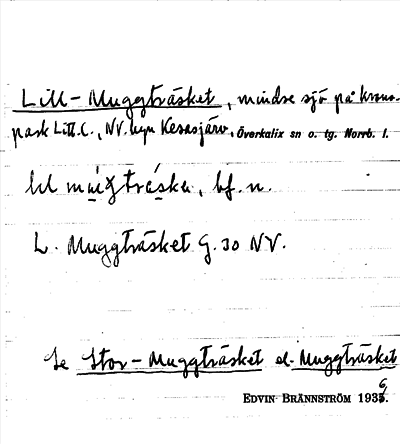 Lill-Muggträsket, mindre sjö på krono-
park Litt. C., NV. byn Kesasjärv, Överkalix sn o. tg. Norrb. l.
lil muggträske, bf. n.
L. Muggträsket G. 30 NV.
Se Stor-Muggträsket el. Muggträsket
EDVIN BRÄNNSTRÖM 1936.